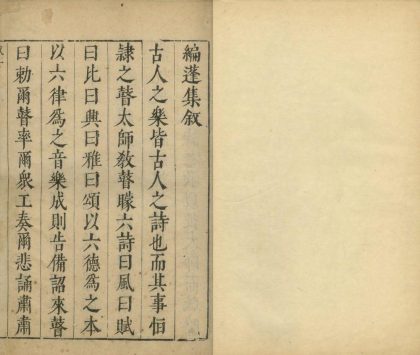 編蓬集叙
古人之樂皆古人之詩也而其事恒
隷之瞽太師敎瞽矇六詩曰風曰賦
曰比曰興曰雅曰頌以六德爲之本
以六律爲之音樂成則告備詔來瞽
曰勅爾瞽率爾衆工奏爾悲誦肅肅